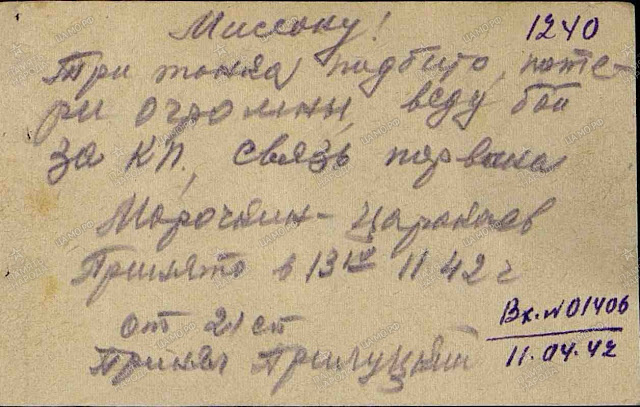 Миссану! 1240
Три танка подбито, поте-
ри огромны, веду бой
за КП, связь порвана
Марочкин - Царапаев
Принято в 13 11 42 г
от 21 ст
Принял Прилуцкий
Вх. N 01406
11.04.42